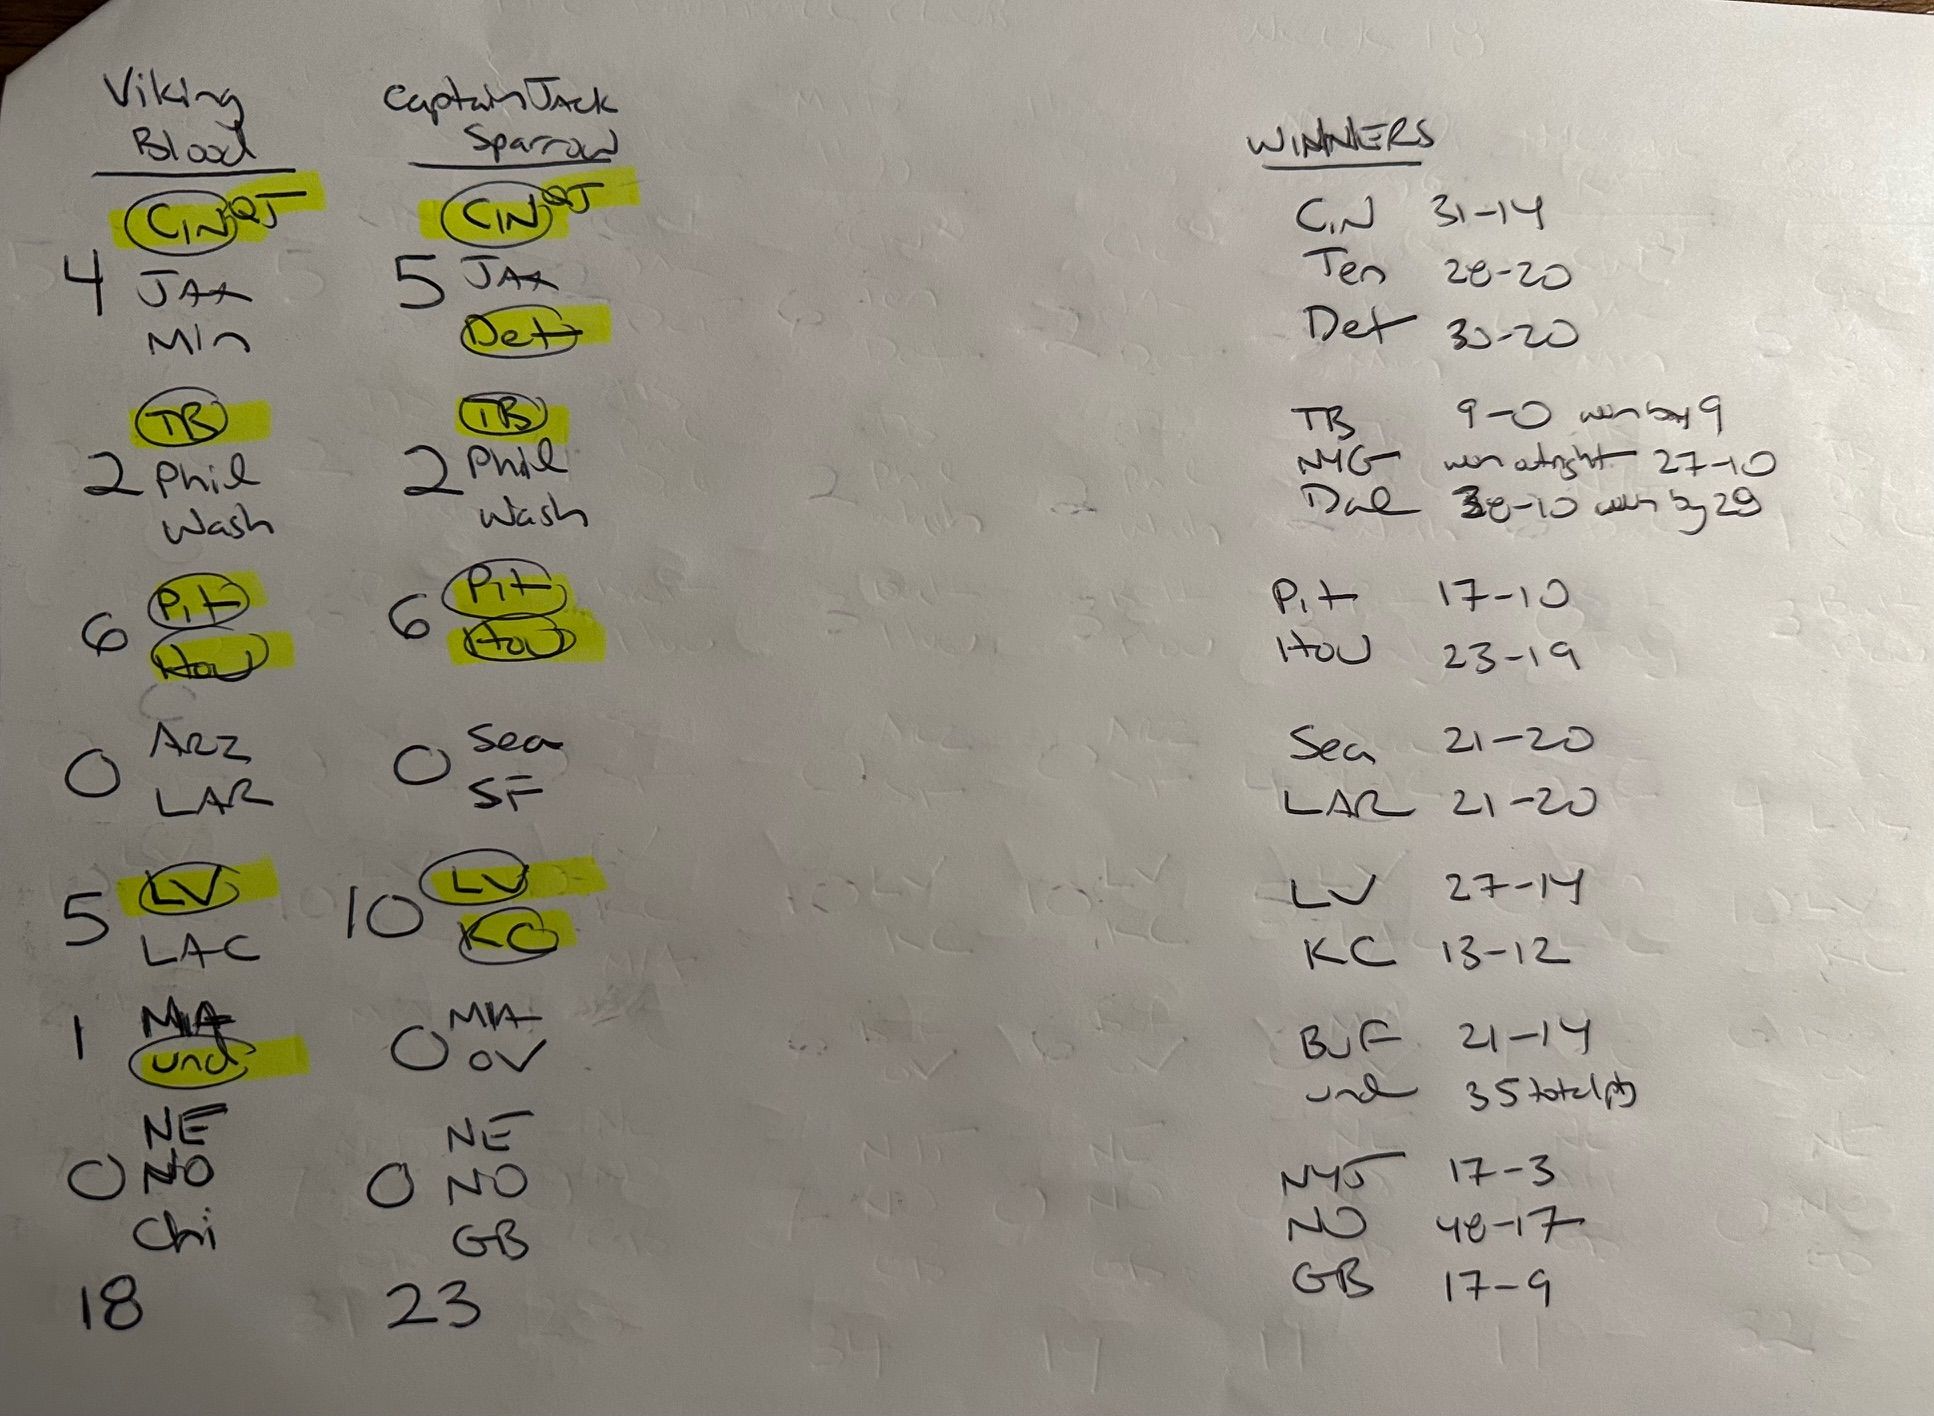 Viking
Blood
CIN QJ
4 JAX
Min
TB
2 Phil
Wash
Pit
6 Hou
0 ARZ
LAR
LV
5 LAC
1 MIA
und
NE
0 NO
Chi
18
Captain Jack
Sparrow
CIN QJ
5 JAX
Det
TB
2 Phil
Wash
6 Pit
Hou
0 Sea
SF
10 LV
KC
MIA
0 OV
NE
0 NO
GB
23
WINNERS
CIN 31-14
Ten 28-20
Det 30-20
TB 9-0 win by 9
NYG win outright 27-10
Dal 38-10 win by 29
Pit 17-10
HOU 23-19
Sea 21-20
LAR 21-20
LV 27-14
KC 13-12
BUF 21-14
und 35 total pts
NYJ 17-3
NO 48-17
GB 17-9